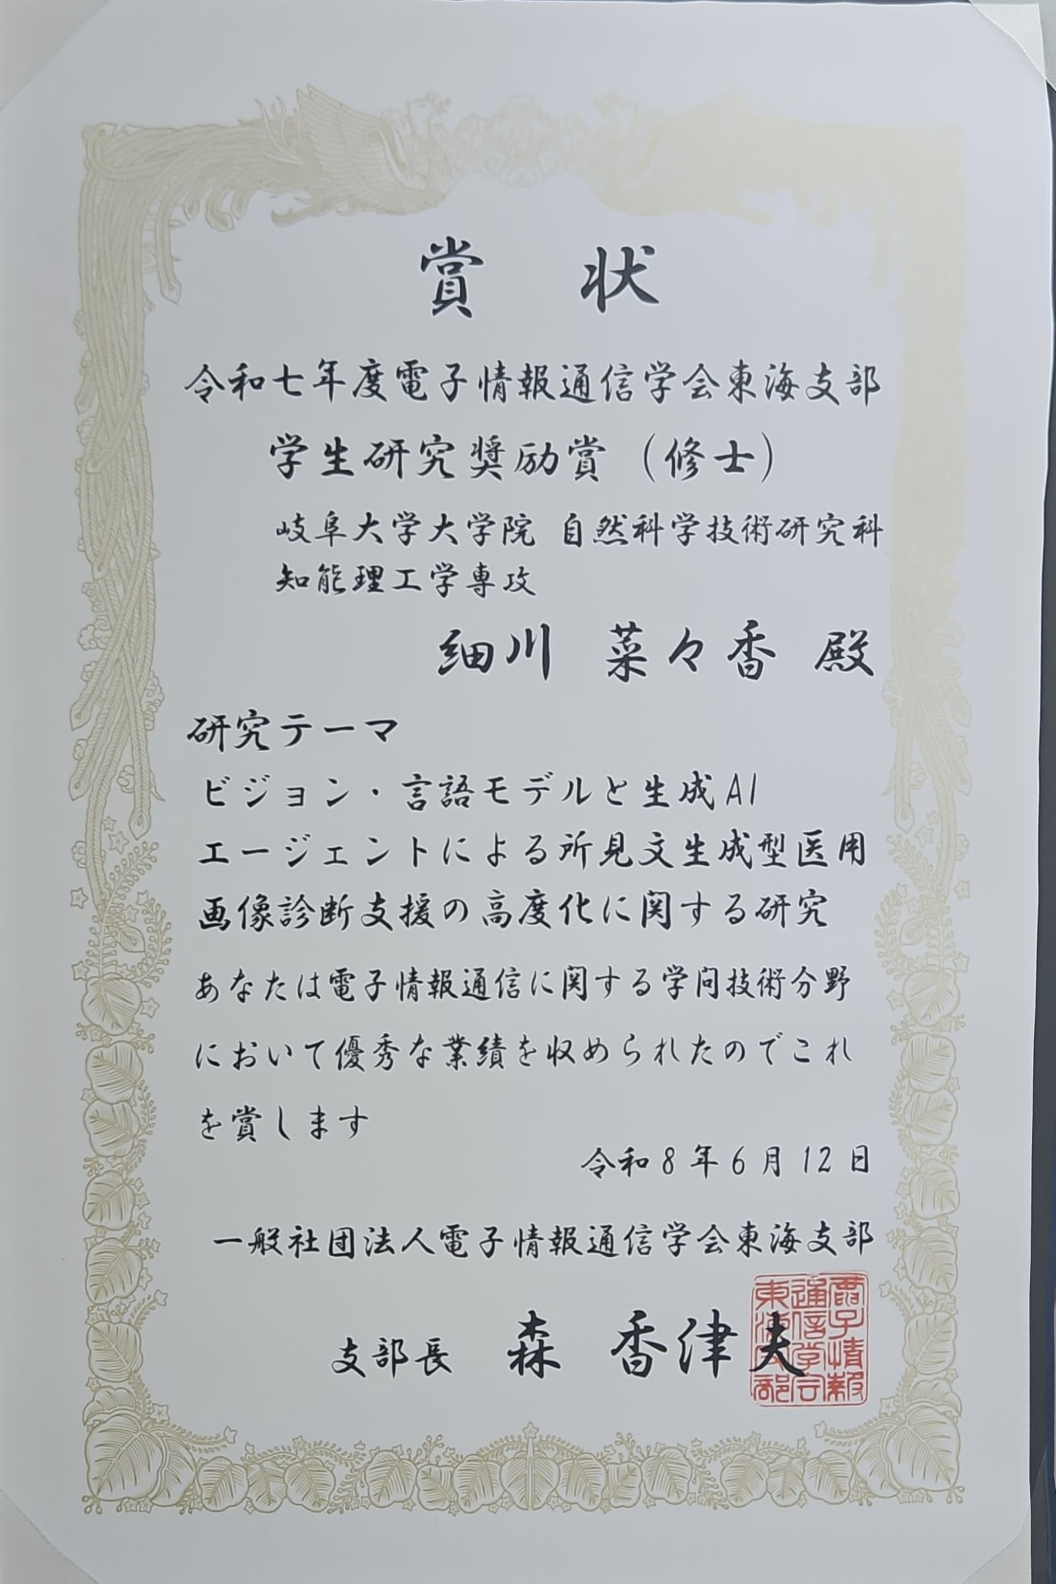 賞 状
令和七年度電子情報通信学会東海支部
学生研究奨励賞（修士）
岐阜大学大学院 自然科学技術研究科
知能理工学専攻
細川 菜々香 殿
研究テーマ
ビジョン・言語モデルと生成AI
エージェントによる所見文生成型医用
画像診断支援の高度化に関する研究
あなたは電子情報通信に関する学問技術分野
において優秀な業績を収められたのでこれ
を賞します
令和8年6月12日
一般社団法人電子情報通信学会東海支部
支部長 森 香津夫
電子情報
通信学会
東海支部